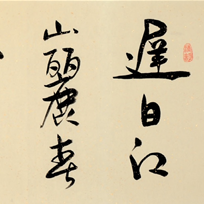 遲日江
山麗春